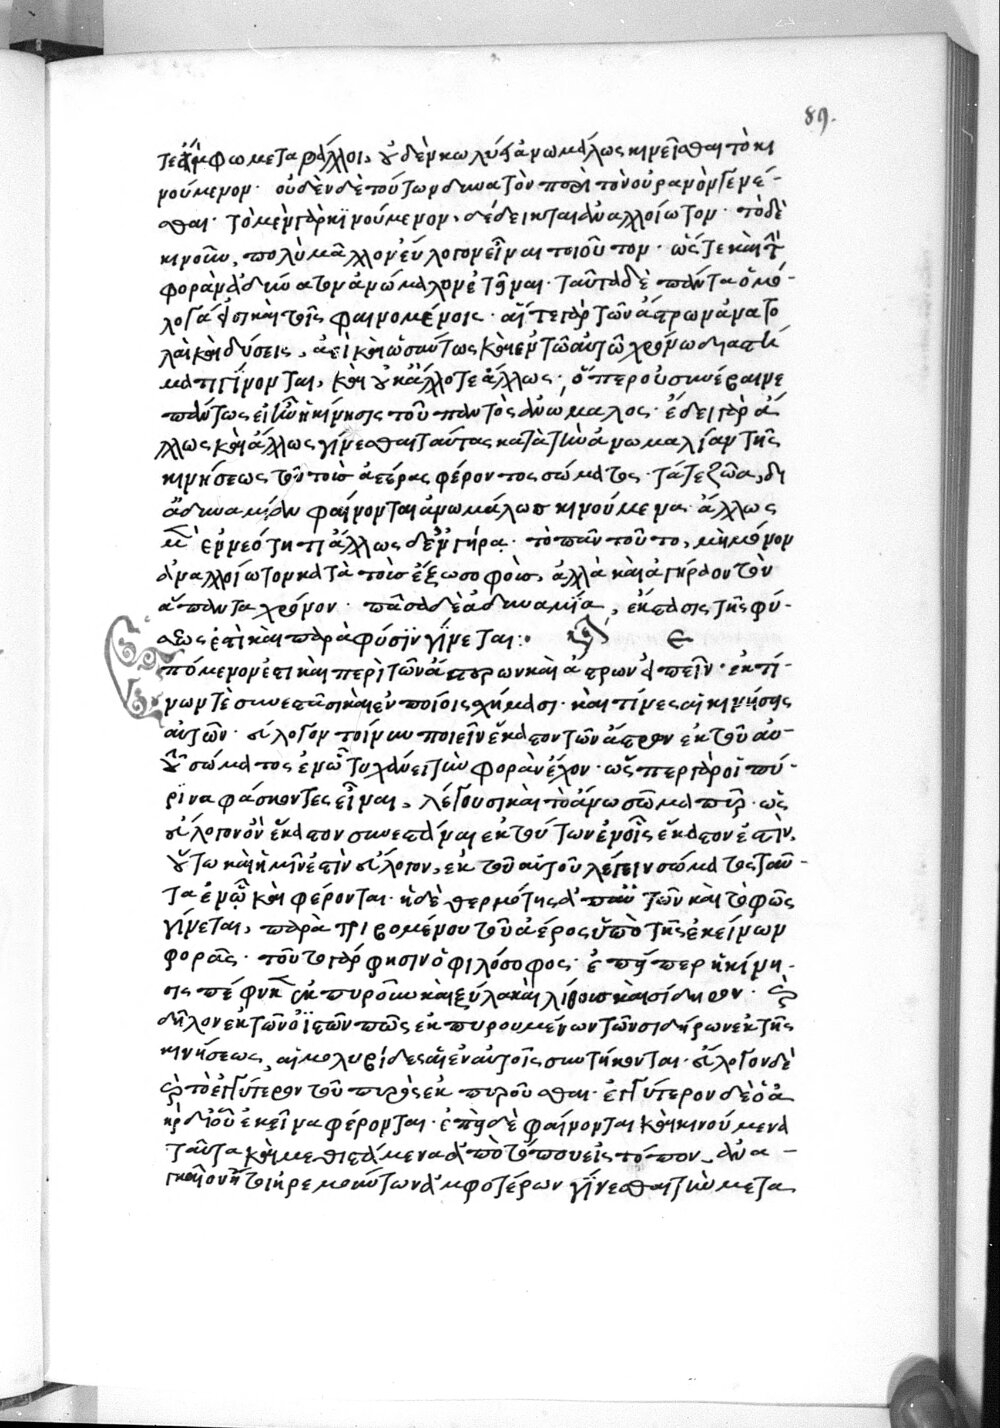 89.
τε ἄμφω μεταβάλλοι, οὐδὲν κωλύει ἀνωμάλως κινεῖσθαι τὸ κι
νούμενον· οὐδὲν δὲ τούτων δυνατὸν περὶ τὸν οὐρανὸν γενέ-
σθαι· τὸ μὲν γὰρ κινούμενον, δέδεικται ἀναλλοίωτον· τὸ δὲ
κινοῦν, πολὺ μᾶλλον εὔλογον εἶναι τοιοῦτον· ὥστε καὶ τὴν
φορὰν ἀδύνατον ἀνώμαλον εἶναι· ταῦτα δὲ πάντα ὁμο-
λογεῖσι καὶ τοῖς φαινομένοις· αἵ τε γὰρ τῶν ἄστρων ἀνατο
λαὶ καὶ δύσεις, ἀεὶ καὶ ὡσαύτως καὶ ἐν τῷ αὐτῷ χρόνῳ διαστή
ματι γίνονται, καὶ οὐκ ἄλλοτε ἄλλως· ὅπερ οὐ συνέβαινε
πάντως εἰ ἦν ἡ κίνησις τοῦ παντὸς ἀνώμαλος· ἔδει γὰρ ἄ
λλως καὶ ἄλλως γίνεσθαι ταύτας κατὰ τὴν ἀνωμαλίαν τῆς
κινήσεως τοῦ τοὺς ἀστέρας φέροντος σώματος· τά τε ζῶα, δι
ἀδυναμίαν φαίνονται ἀνωμάλως κινούμενα· ἄλλως
μὲν ἐν νεότητι ἄλλως δὲ ἐν γήρᾳ· τὸ πᾶν τοῦτο, μὴ μόνον
ἀναλλοίωτον κατὰ τοὺς ἔξω σοφοὺς, ἀλλὰ καὶ ἀγήραον τὸν
ἅπαντα χρόνον· πᾶσα δὲ ἀδυναμία, ἔκστασις τῆς φύ-
σεως ἐστὶ καὶ παρὰ φύσιν γίνεται:·
Ἑπόμενον ἐστὶ καὶ περὶ τῶν ἀστέρων καὶ ἄστρων εἰπεῖν· ἐκ τί-
νων τὲ συνεστᾶσι καὶ ἐν ποίοις σχήμασι· καὶ τίνες αἱ κινήσεις
αὐτῶν· εὔλογόν τοίνυν ποιεῖν ἕκαστον τῶν ἄστρων ἐκ τοῦ αὐ-
τοῦ σώματος ἐν ᾧ τυγχάνει τὴν φορὰν ἔχον· ὥσπερ γὰρ οἱ πύ-
ρινα φάσκοντες εἶναι, λέγουσι καὶ τὸ ἄνω σῶμα πῦρ· ὡς
εὔλογον ὂν ἕκαστον συνεστάναι ἐκ τούτων ἐν οἷς ἕκαστον ἐστὶν,
οὕτω καὶ ἡμῖν ἐστὶν εὔλογον, ἐκ τοῦ αὐτοῦ λέγειν σώματος ταῦ-
τα ἐν ᾧ καὶ φέρονται· ἡ δὲ θερμότης ἀπ' αὐτῶν καὶ τὸ φῶς
γίνεται, παρὰ τριβομένου τοῦ ἀέρος ὑπὸ τῆς ἐκείνων
φορᾶς· τοῦτο γάρ φησιν ὁ φιλόσοφος· ἐπείπερ ἡ κίνη-
σις πέφυκεν ἐκπυροῦν καὶ ξύλα καὶ λίθους καὶ σίδηρον· ὡς
δῆλον ἐκ τῶν οἰστῶν πῶς ἐκπυρουμένων τῶν σιδήρων ἐκ τῆς
κινήσεως, αἱ μολυβίδες αἱ ἐν αὐτοῖς συντήκονται· εὔλογον δὲ
τὸ ἐγγύτερον τοῦ πυρὸς ἐκπυροῦσθαι· ἐγγύτερον δὲ ὁ ἀ
ὴρ δι' οὗ ἐκεῖνα φέρονται· ἐπεὶ δὲ φαίνονται καὶ κινούμενα
ταῦτα καὶ μεθιστάμενα ἀπὸ τόπου εἰς τόπον, ἀνα-
γκαῖον ἤτοι ἠρεμούντων ἀμφοτέρων γίνεσθαι τὴν μετα